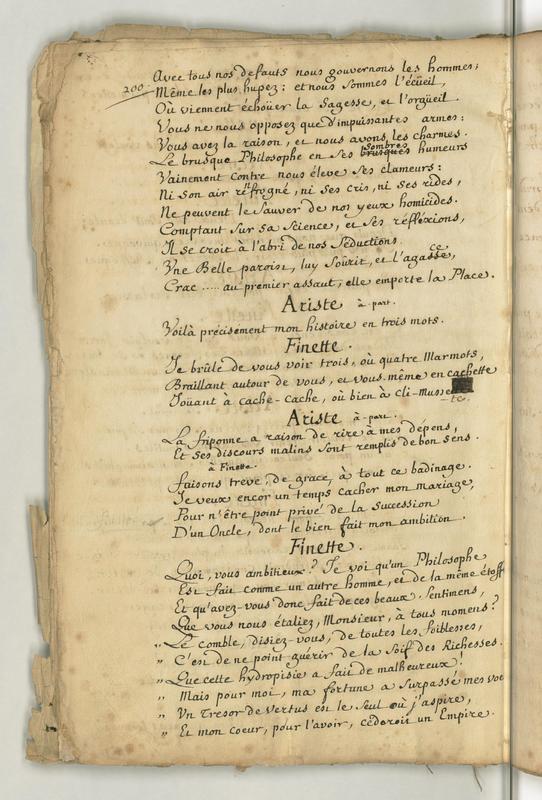 Avec tous nos defauts nous gouvernons les hommes;
200. Même les plus hupez: et nous sommes l'écüeil,
Où viennent échoüer la Sagesse, et l'orgüeil.
Vous ne nous opposez que d'impuissantes armes:
Vous avez la raison, et nous avons les charmes.
Le brusque Philosophe en ses brusques sombres humeurs
Vainement contre nous éleve ses clameurs:
Ni son air réfrogné, ni ses cris, ni ses rides,
Ne peuvent le sauver de nos yeux homicides.
Comptant sur sa science, et ses réfléxions,
Il se croit à l'abri de nos séductions.
Une Belle paroist, luy soûrit, et l'agasse, ce
Crac ..... au premier assaut, elle emporte la Place.
Ariste à part.
Voilà précisement mon histoire en trois mots.
Finette.
Je brûle de vous voir trois, où quatre Marmots,
Braillant autour de vous, et vous même en cachette
Joüant à cache-cache, où bien à cli-musette
Ariste à part.
La friponne a raison de rire à mes dépens,
Et ses discours malins sont remplis de bon sens.
à Finette.
faisons treve, de grace, à tout ce badinage.
Je veux encor un temps cacher mon mariage,
Pour n'être point privé de la succession
D'un Oncle, dont le bien fait mon ambition.
Finette.
Quoi, vous ambitieux? Je voi qu'un Philosophe
Est fait comme un autre homme, et de la même étoff
Et qu'avez-vous donc fait de ces beaux sentimens,
Que vous nous étaliez, Monsieur, à tous momens?
„ Le comble, disiez-vous, de toutes les foiblesses,
„ C'est de ne point guérir de la soif des Richesses.
„ Que cette hydropisie a fait de malheureux!
„ Mais pour moi, ma fortune a surpassé mes vœ
„ Un Tresor de vertus est le seul où j'aspire,
„ Et mon coeur, pour l'avoir, céderoit un Empire.